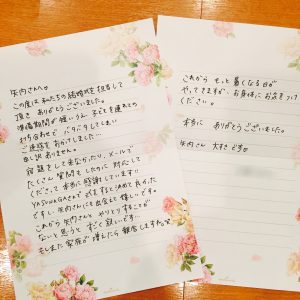 矢内さんへ。
この度は私たちの結婚式を担当して
頂き ありがとうございました。
準備期間が短いうえ、子ども連れでの
打ち合わせで バタバタしてしまい
ご迷惑をおかけしました…
申し訳ありません。
宿題をして来なかったり、メールで
たくさん質問をしたのに 対応して
くださって 本当に感謝しています!!
YASUNAGAさんで式をすると決めて良かった
ですし、矢内さんにも出会えて嬉しいです。
これから 矢内さんと やりとりすることが
ないと思うと すごく寂しいです…
もしまた 家族が 増えたら 報告しますね
これから もっと 暑くなる日が
やってきますが、お身体に お気をつけ
ください。
本当に ありがとうございました。
矢内さん 大すき です。